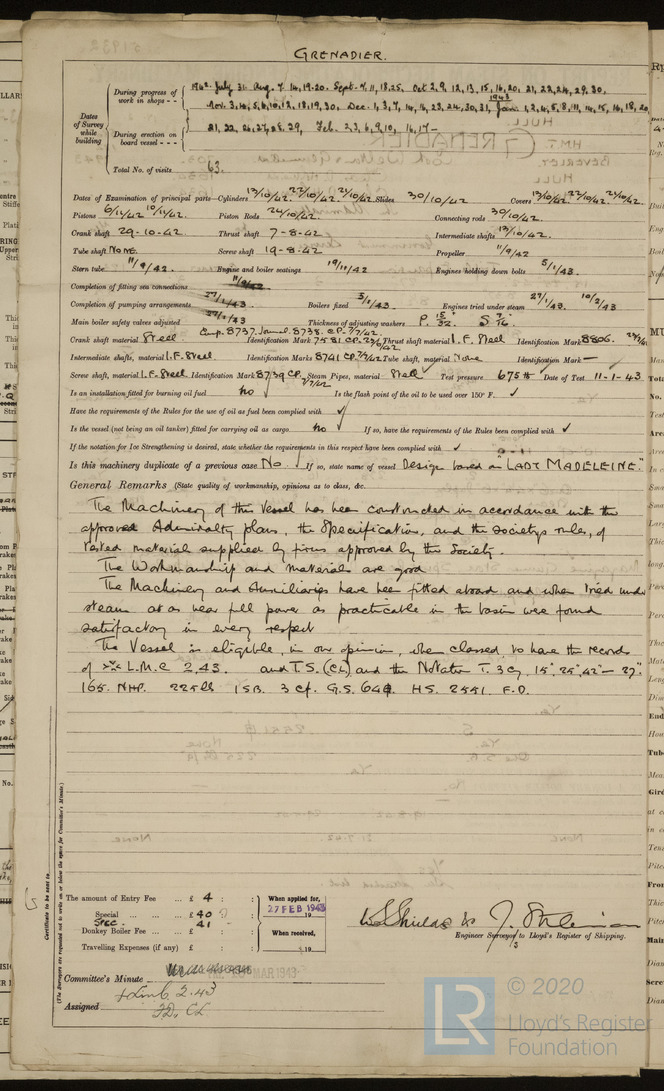 GRENADIER.
Dates of Survey while building
During progress of work in shops - -
1942. July 31. Aug. 7. 14, 19-20. Sept. 4, 11, 18, 25. Oct 2, 9, 12, 13, 15, 16, 20, 21, 22, 24, 29, 30,
Nov. 3, 4, 5, 6, 10, 12, 18, 19, 30. Dec. 1, 3, 7, 14, 16, 23, 24, 30, 31, 1943 Jan. 1, 2, 4, 5, 8, 11, 14, 15, 16, 18, 20,
During erection on board vessel - - -
21, 22, 26, 27, 28, 29, Feb. 2, 3, 6, 9, 10, 16, 17-
Total No. of visits 63.
Dates of Examination of principal parts—Cylinders 13/10/42. 22/10/42. 24/10/42. Slides 30/10/42 Covers 13/10/42. 22/10/42. 24/10/42.
Pistons 6/11/42 10/11/42. Piston Rods 24/10/42. Connecting rods 30/10/42.
Crank shaft 29-10-42. Thrust shaft 7-8-42 Intermediate shafts 13/10/42.
Tube shaft NONE. Screw shaft 19-8-42 Propeller 11/9/42
Stern tube 11/9/42. Engine and boiler seatings 19/11/42 Engines holding down bolts 5/1/43.
Completion of fitting sea connections 11/9/42
Completion of pumping arrangements 27/1/43. Boilers fixed 5/1/43. Engines tried under steam 27/1/43. 10/2/43
Main boiler safety valves adjusted 27/1/43 Thickness of adjusting washers P. 15/32. S 7/16.
Crank shaft material Steel Identification Mark 7581 CP. Thrust shaft material I.F. Steel Identification Mark 8806.
Intermediate shafts, material I.F. Steel. Identification Marks 8741 CP. 7/7/42. Tube shaft, material None Identification Mark —
Screw shaft, material I.F. Steel Identification Mark 8739 CP. 7/7/42 Steam Pipes, material Steel Test pressure 675 lb Date of Test 11-1-43
Is an installation fitted for burning oil fuel no Is the flash point of the oil to be used over 150° F. ✓
Have the requirements of the Rules for the use of oil as fuel been complied with ✓
Is the vessel (not being an oil tanker) fitted for carrying oil as cargo. no If so, have the requirements of the Rules been complied with ✓
If the notation for Ice Strengthening is desired, state whether the requirements in this respect have been complied with ✓
Is this machinery duplicate of a previous case No. If so, state name of vessel Design based on "LADY MADELEINE."
General Remarks (State quality of workmanship, opinions as to class, &c.
The Machinery of this Vessel has been constructed in accordance with the
approved Admiralty plans, the Specification, and the Society's rules, of
tested material supplied by firms approved by the Society.
The Workmanship and materials are good
The Machinery and Auxiliaries have been fitted aboard and when tried under
steam at as near full power as practicable in the basin were found
satisfactory in every respect
The Vessel is eligible, in our opinion, when classed, to have the records
of L.M.C 2.43. and T.S. (CL) and the Notation T. 3 Cy. 15", 25", 42" — 27".
165. NHP. 225 lb 1 S.B. 3 cf. G.S. 64 HS. 2551. F.D.
Certificate to be sent to
(The Surveyors are requested not to write on or below the space for Committee's Minute.)
The amount of Entry Fee ... £ 4 : :
Special ... ... ... £ 40 : :
SPEC. Donkey Boiler Fee ... ... £ 41 : :
Travelling Expenses (if any) £ : :
When applied for,
27 FEB 1943
When received,
19
Engineer Surveyor to Lloyd's Register of Shipping.
Committee's Minute
MAR 1943
Assigned + Lmb 2.43
FD. CL
© 2020
Lloyd's Register
Foundation
LR